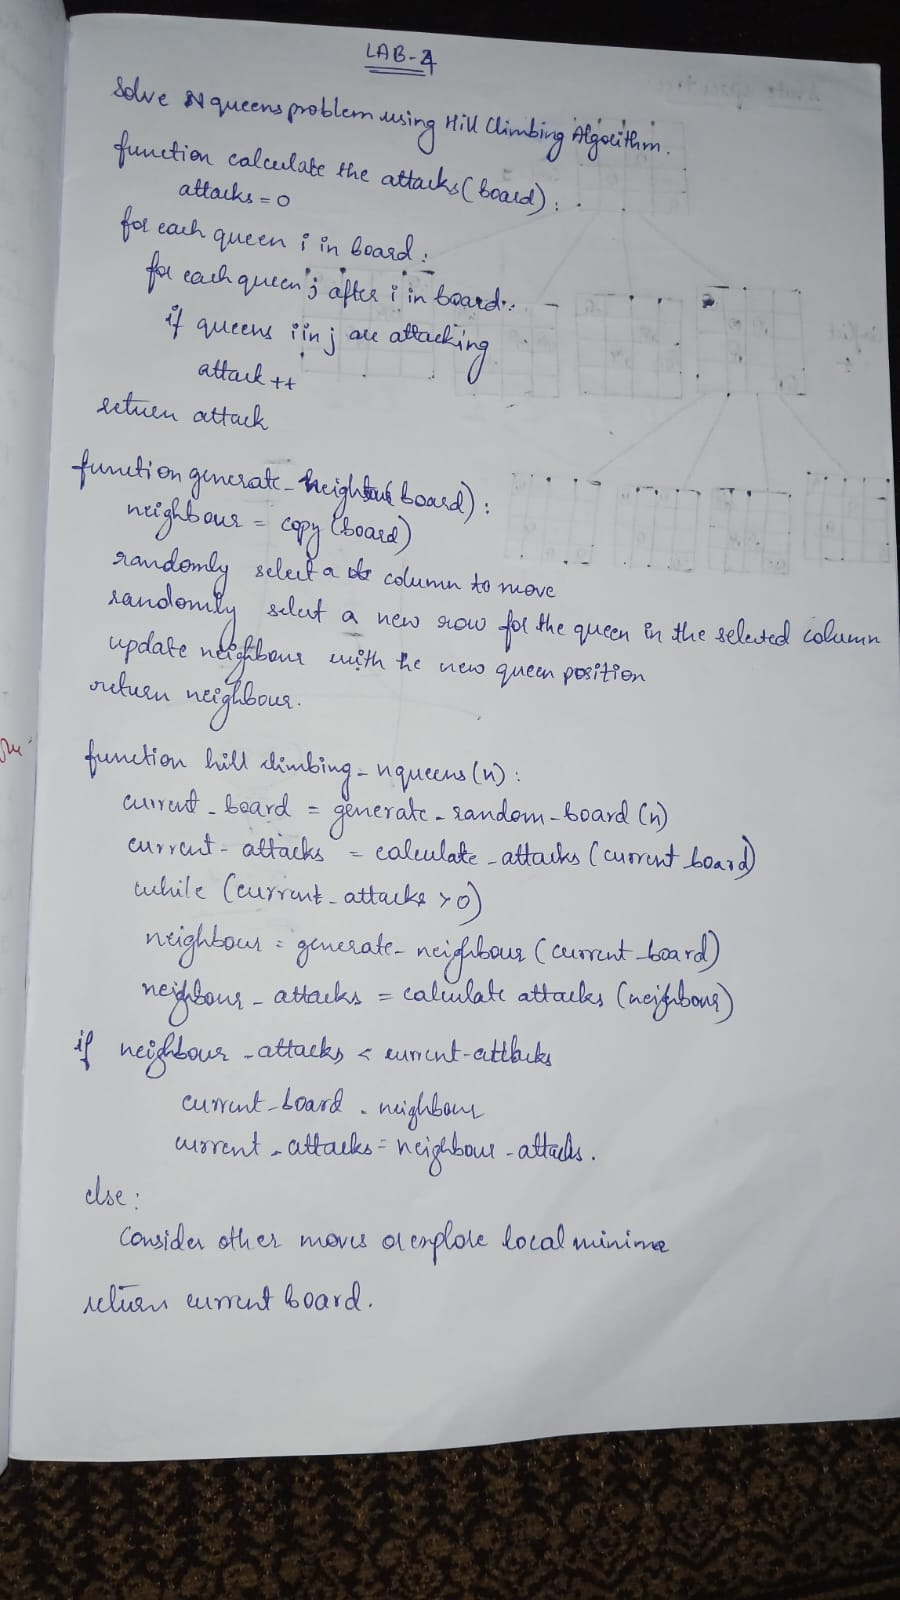 LAB-4
Solve N queens problem using Hill Climbing Algorithm.
function calculate the attacks (board):
attacks = 0
for each queen i in board:
for each queen j after i in board:
if queens i in j are attacking
attack ++
return attack
function generate_neighbour (board):
neighbour = copy (board)
randomly select a column to move
randomly select a new row for the queen in the selected column
update neighbour with he new queen position
return neighbour.
function hill climbing - nqueens (n):
current - board = generate - random - board (n)
current - attacks = calculate - attacks (current board)
while (current - attacks > 0)
neighbour = generate - neighbour (current - board)
neighbour - attacks = calculate attacks (neighbour)
if neighbour - attacks < current - attacks
current - board = neighbour
current - attacks = neighbour - attacks.
else:
Consider other moves or explore local minima
return current board.